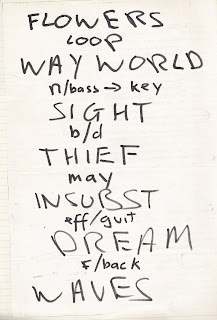 FLOWERS
LOOP
WAY WORLD
n/bass → key
SIGHT
b/d
THIEF
may
INSUBST
eff/guit
DREAM
F/back
WAVES